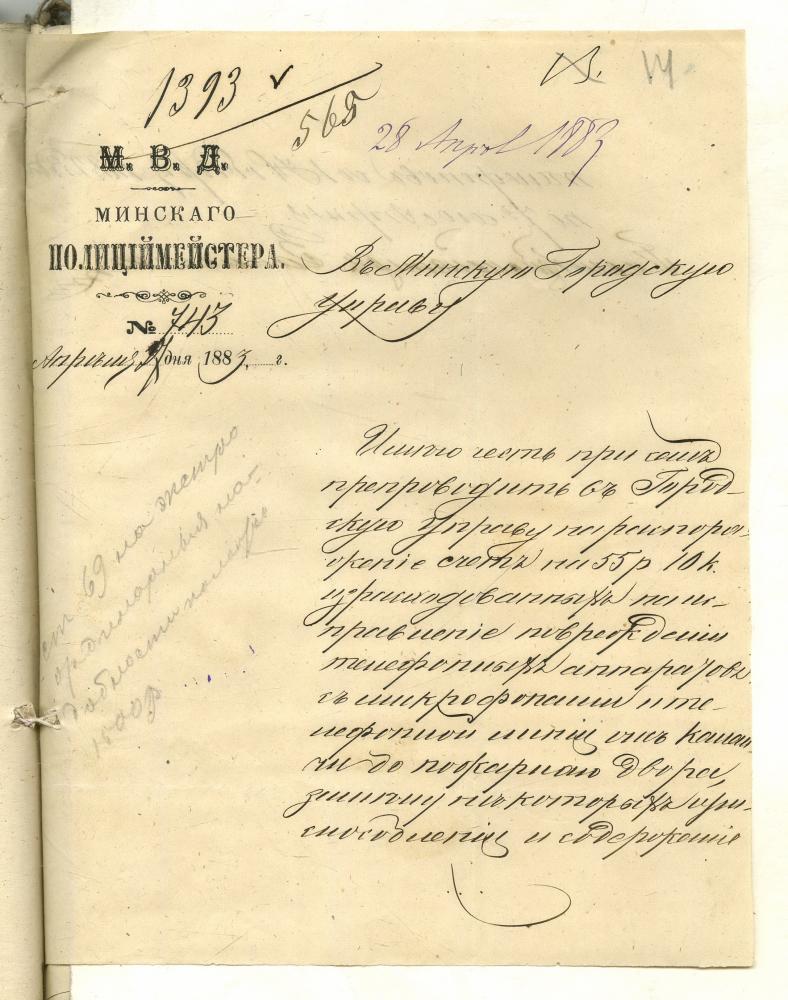 1393
565
13. 14
28 Апрѣл 1883
М. В. Д.
МИНСКАГО
ПОЛИЦІЙМЕЙСТЕРА.
№ 743
Апрѣля 27 дня 1883 г.
Въ Минскую Городскую
Управу
Имѣю честь при семъ
препроводить въ Город-
скую Управу на распоря-
женіе счетъ на 55 р 10 к.
израсходованныхъ на ис-
правленіе поврежденій
телефонныхъ аппаратовъ
съ микрофонами и те-
лефонной линіи отъ калан-
чи до пожарнаго двора,
нѣкоторыхъ при-
способленій и содержаніе
ст 69 на экстра
ординарныя на-
добности полиціи
1500 р